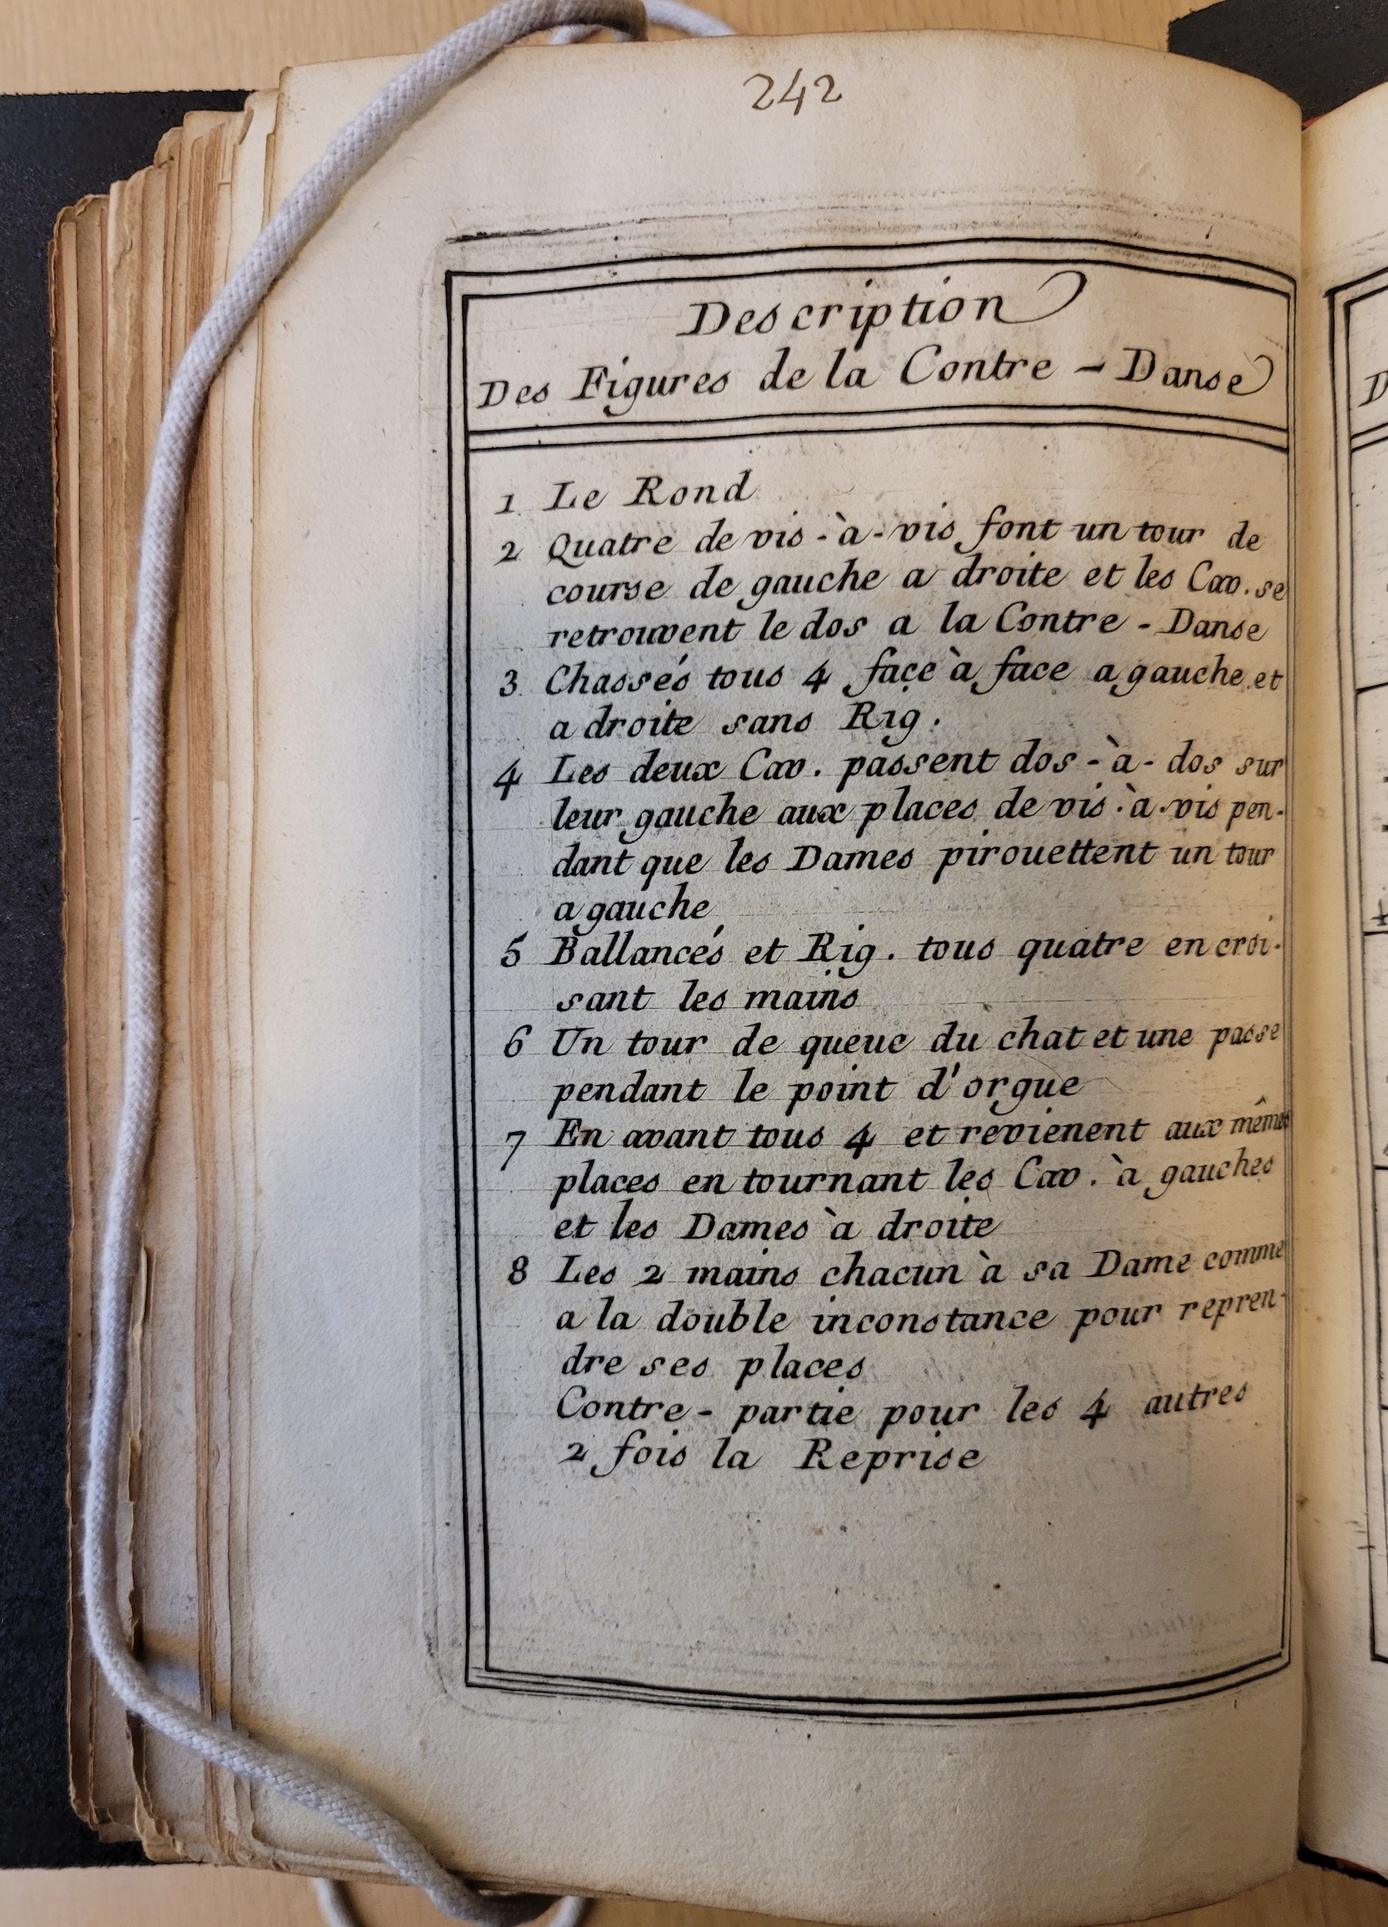 242
Description
Des Figures de la Contre - Danse
1 Le Rond
2 Quatre de vis-à-vis font un tour de
course de gauche a droite et les Cav. se
retrouvent le dos a la Contre - Danse
3 Chassés tous 4 façe à face a gauche et
a droite sans Rig.
4 Les deux Cav. passent dos-à-dos sur
leur gauche aux places de vis.à.vis pen-
dant que les Dames pirouettent un tour
a gauche
5 Ballancés et Rig. tous quatre en croi-
sant les mains
6 Un tour de queue du chat et une passe
pendant le point d'orgue
7 En avant tous 4 et revienent aux mêmes
places en tournant les Cav. à gauches
et les Dames à droite
8 Les 2 mains chacun à sa Dame comme
a la double inconstance pour repren-
dre ses places
Contre - partie pour les 4 autres
2 fois la Reprise
D